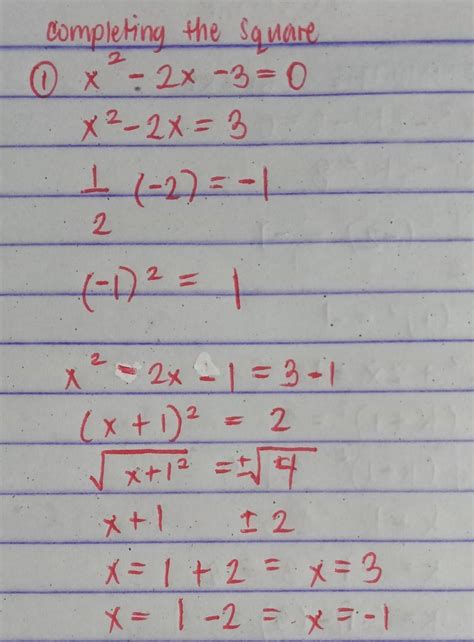 completing the square
① x² - 2x - 3 = 0
x² - 2x = 3
1/2 (-2) = -1
(-1)² = 1
x² - 2x - 1 = 3 - 1
(x + 1)² = 2
√(x+1²) = ±√4
x + 1 ± 2
x = 1 + 2 = x = 3
x = 1 - 2 = x = -1